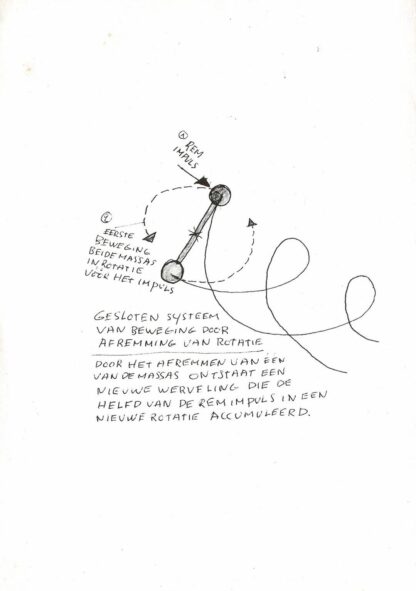 ① REM
IMPULS
②
EERSTE
BEWEGING
BEIDE MASSAS
IN ROTATIE
VOOR HET IMPULS
GESLOTEN SYSTEEM
VAN BEWEGING DOOR
AFREMMING VAN ROTATIE
DOOR HET AFREMMEN VAN EEN
VAN DE MASSAS ONTSTAAT EEN
NIEUWE WERVELING DIE DE
HELFD VAN DE REM IMPULS IN EEN
NIEUWE ROTATIE ACCUMULEERD.